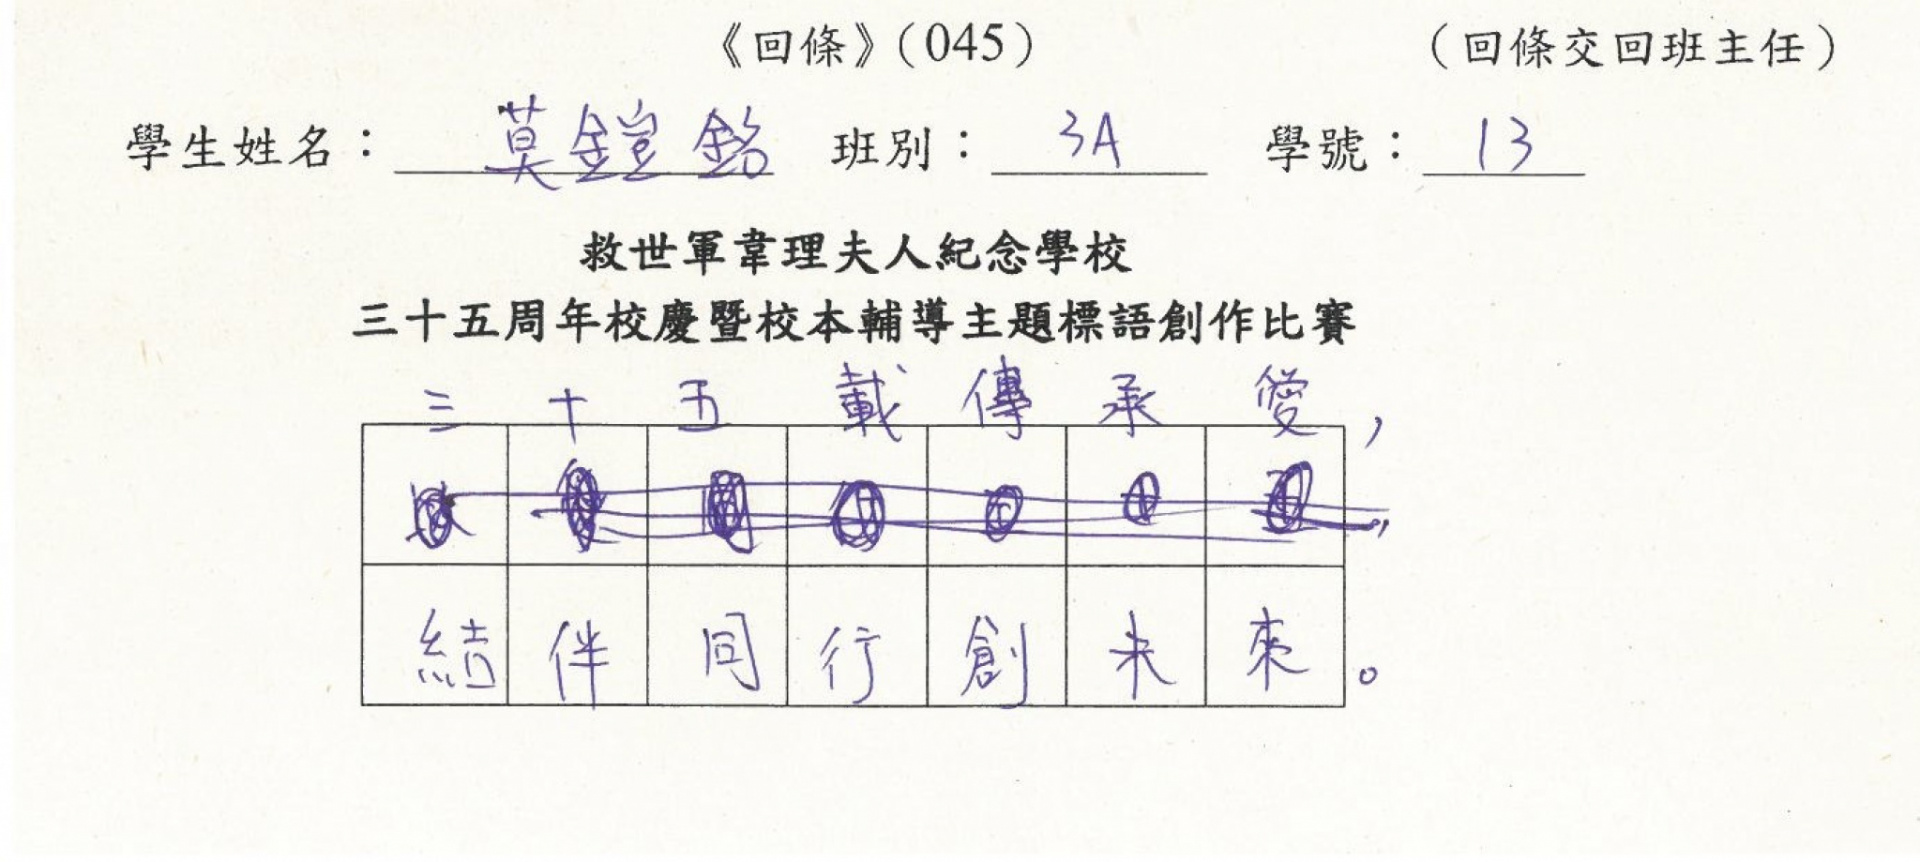 《回條》(045) (回條交回班主任)
學生姓名：莫鎧銘 班別：3A 學號：13
救世軍韋理夫人紀念學校
三十五周年校慶暨校本輔導主題標語創作比賽
三十五載傳承愛，
結伴同行創未來。